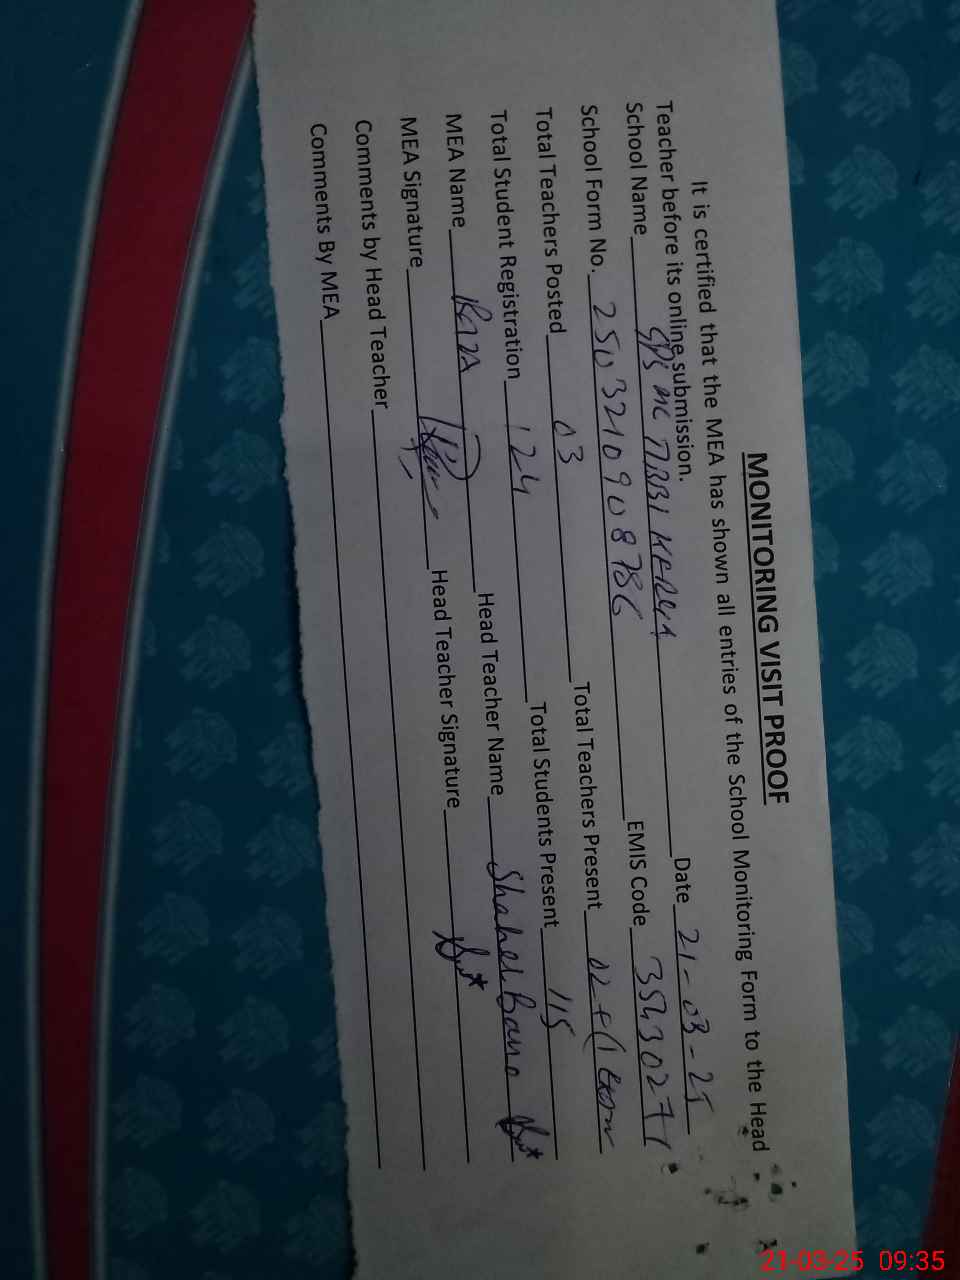 MONITORING VISIT PROOF
It is certified that the MEA has shown all entries of the School Monitoring Form to the Head
Teacher before its online submission.
School Name GPS MC Date 21-03-25
School Form No. EMIS Code 35430271
Total Teachers Posted 03 Total Teachers Present 02 +
Total Student Registration 124 Total Students Present 115
MEA Name Head Teacher Name Bano
MEA Signature Head Teacher Signature
Comments by Head Teacher
Comments By MEA
21-03-25 09:35